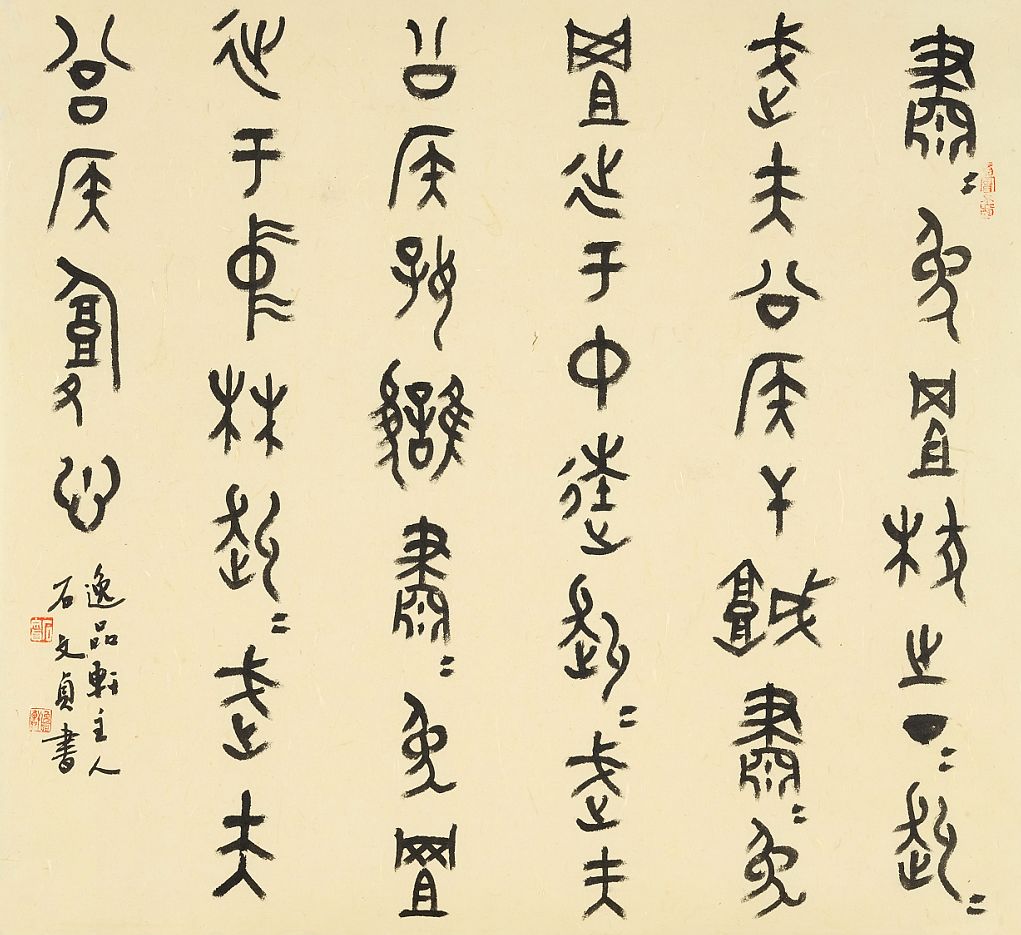 肅〻兔罝椓之丁〻赳〻
武夫公侯干城肅〻兔
罝施于中逵赳〻武夫
公侯好仇肅〻兔罝
施于中林赳〻武夫
公侯腹心
逸品軒主人
石文貞書